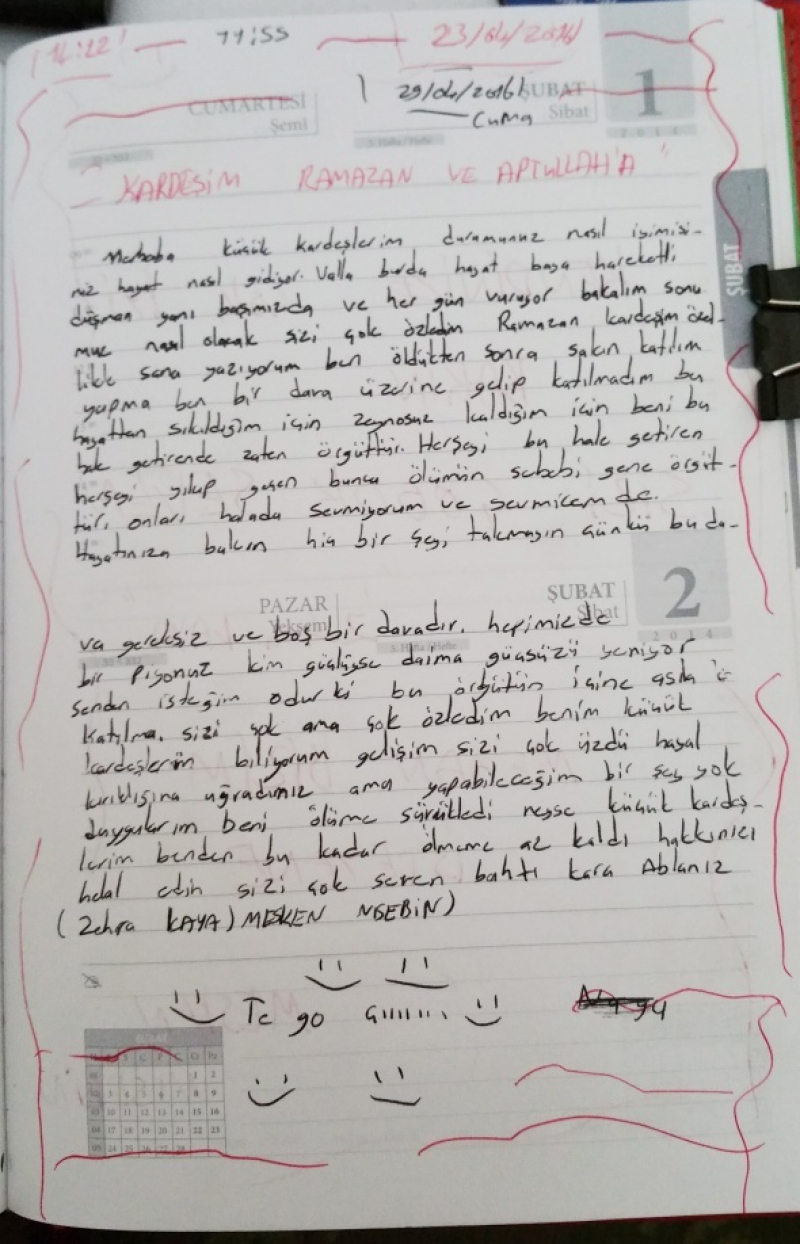 14:22 — 11:55 — 23/04/2016
29/04/2016 ŞUBAT 1
CUMARTESİ Cuma Sibat
Şemi 2014
"KARDEŞİM RAMAZAN VE APTULLAH'A"
Merhaba küçük kardeşlerim durumunuz nasıl iyimisi-
niz hayat nasıl gidiyor. Valla burda hayat baya hareketli
düşman yanı başımızda ve her gün vuruyor bakalım sonu
muz nasıl olacak sizi çok özledim Ramazan kardeşim özel-
likle sana yazıyorum ben öldükten sonra sakın katılım
yapma ben bir dava üzerine gelip katılmadım bu
hayattan sıkıldığım için kaldığım için beni bu
hale getirende zaten örgüttür. Herşeyi bu hale getiren
herşeyi yıkıp geçen bunca ölümün sebebi gene örgüt-
tür, onları halada sevmiyorum ve sevmicem de.
Hayatınıza bakın hiç bir şeyi takmayın çünkü bu da-
ŞUBAT
PAZAR ŞUBAT 2
Yekşem Sibat
2014
va gereksiz ve boş bir davadır. hepimizde
bir piyonuz kim güçlüyse daima güçsüzü yeniyor
senden isteğim odur ki bu örgütün içine asla
katılma. sizi çok ama çok özledim benim küçük
kardeşlerim biliyorum gelişim sizi çok üzdü hayal
kırıklığına uğradınız ama yapabileceğim bir şey yok
duygularım beni ölüme sürükledi neyse küçük kardeş-
lerim benden bu kadar ölmeme az kaldı hakkınızı
helal edin sizi çok seven bahtı kara Ablanız
(Zehra KAYA) MESKEN NSEBİN)